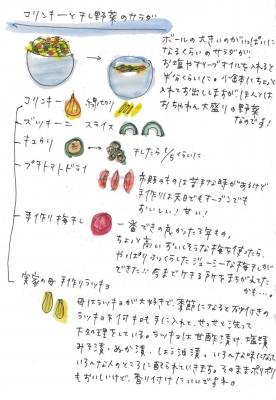 コリンキーと干し野菜のサラダ
ボールの大きいのがいっぱいに
なるくらいのサラダが
お塩やオリーブオイルを入れると
半分くらいに。小鉢にちょんと
入れてお出ししますが、ほんとは
おちゃわん大盛りの野菜
なのです!
コリンキー 細切り
ズッキーニ スライス
きゅうり 干したら1/5くらいに
プチトマトドライ
市販のものは苦手な時があるけど
手作りは天日でもオーブンでも
おいしい!甘い!
手作り梅干し
一番できの良かった3年もの。
ちょっと高いおいしそうな梅を使ったら、
やっぱりふっくらしたジューシーな梅干しが
できた!!今までケチる所をまちがえてた
かも…。
実家の母 手作りラッキョ
母はラッキョが大好きで、季節になると万付きの
ラッキョを何キロも手に入れて、せっせと洗って
下処理をしている。ラッキョは甘酢漬け、塩漬
みそ漬、ぬか漬、しょう油漬、いろんな味になって
いろんな人のところに配られていきます。そのままポリポリ
もおいしいけど、香り付けにいいですね。